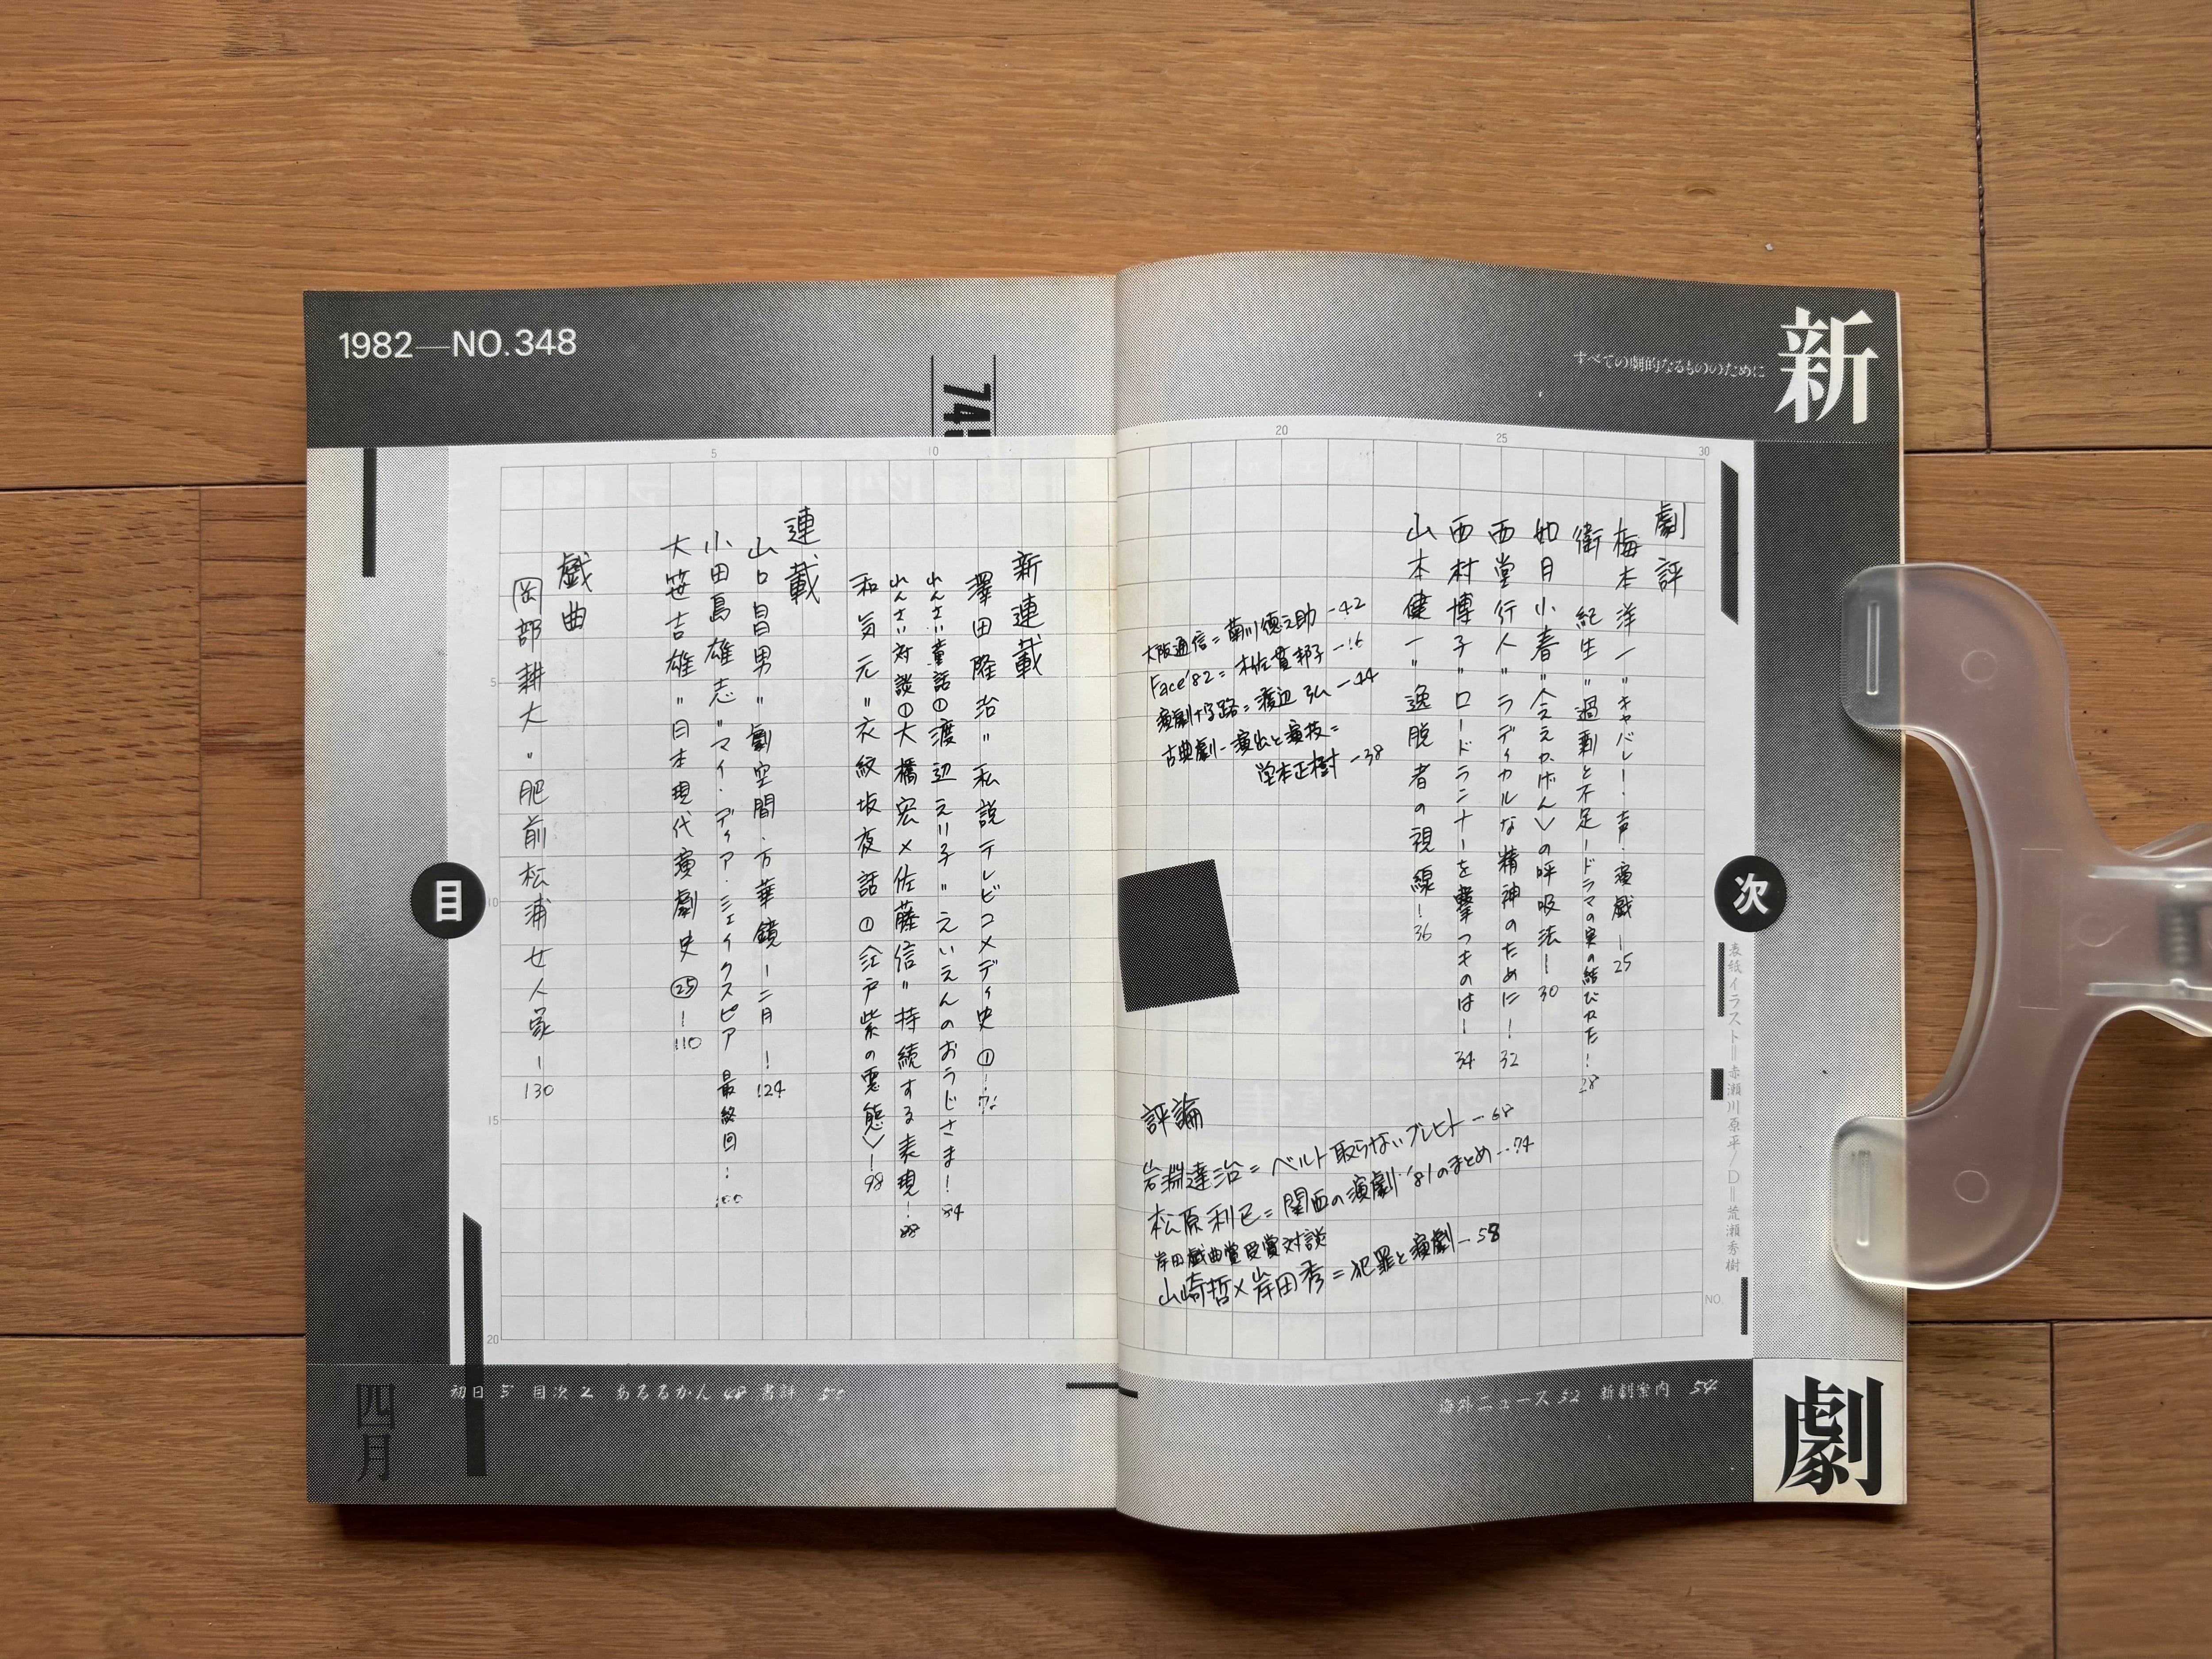 新
劇
すべての劇的なるもののために
1982—NO.348
四月
目
次
劇評
梅本洋一〃キャバレー・声・演戯—25
衛紀生〃過剰と不足—ドラマの実の結びかた—28
如月小春〃〈ええかげん〉の呼吸法—30
西堂行人〃ラディカルな精神のために—32
西村博子〃ロードランナーを撃つものは—34
山本健一〃逸脱者の視線—36
大阪通信=菊川徳之助—42
Face'82=木佐貫邦子—16
演劇十字路=渡辺弘—44
古典劇—演出と演技=
堂本正樹—38
評論
岩淵達治=ベルト取らないブレヒト—68
松原利巳=関西の演劇'81のまとめ—74
岸田戯曲賞受賞対談
山崎哲×岸田秀=犯罪と演劇—58
新連載
澤田隆治〃私説テレビコメディ史①
れんさい童話①渡辺えり子〃えいえんのおうじさま—84
れんさい対談①大橋宏×佐藤信〃持続する表現—88
和気元〃衣紋坂夜話①〈江戸紫の悪態〉—98
連載
山口昌男〃劇空間・万華鏡—二月—124
小田島雄志〃マイ・ディア・シェイクスピア 最終回—100
大笹吉雄〃日本現代演劇史㉕—110
戯曲
岡部耕大〃肥前松浦女人塚—130
表紙イラスト=赤瀬川原平/D=荒瀬秀樹
初日 5 目次 2 あるるかん 48 書評 50
海外ニュース 52 新劇案内 54
5
10
20
25
30
5
10
15
20
NO.